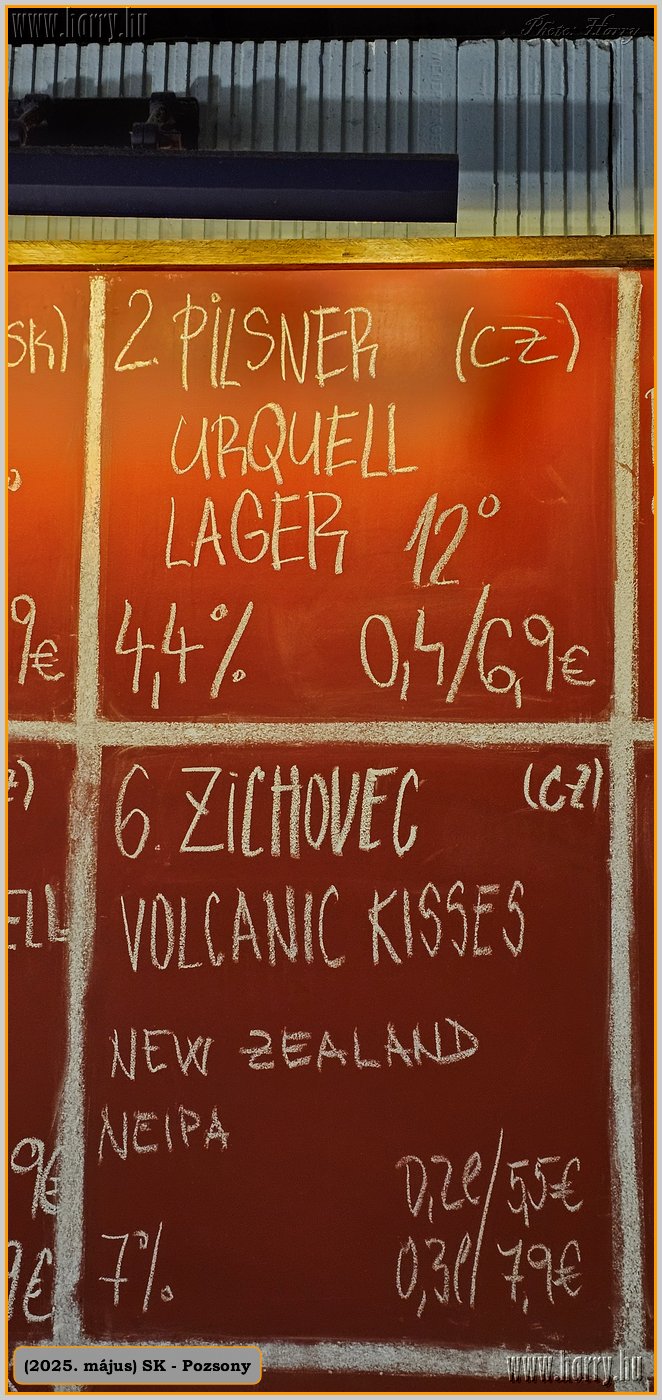 www.horry.hu
Photo: Horry
SK)
2. PiLSNER (CZ)
URQUELL
LAGER 12°
4,4% 0,4/6,9€
9€
6. ZiCHOVEC (CZ)
VOLCANIC KISSES
ELL
NEW ZEALAND
NEIPA
0,2l/5,5€
9€
7% 0,3l/7,9€
9€
(2025. május) SK - Pozsony
www.horry.hu